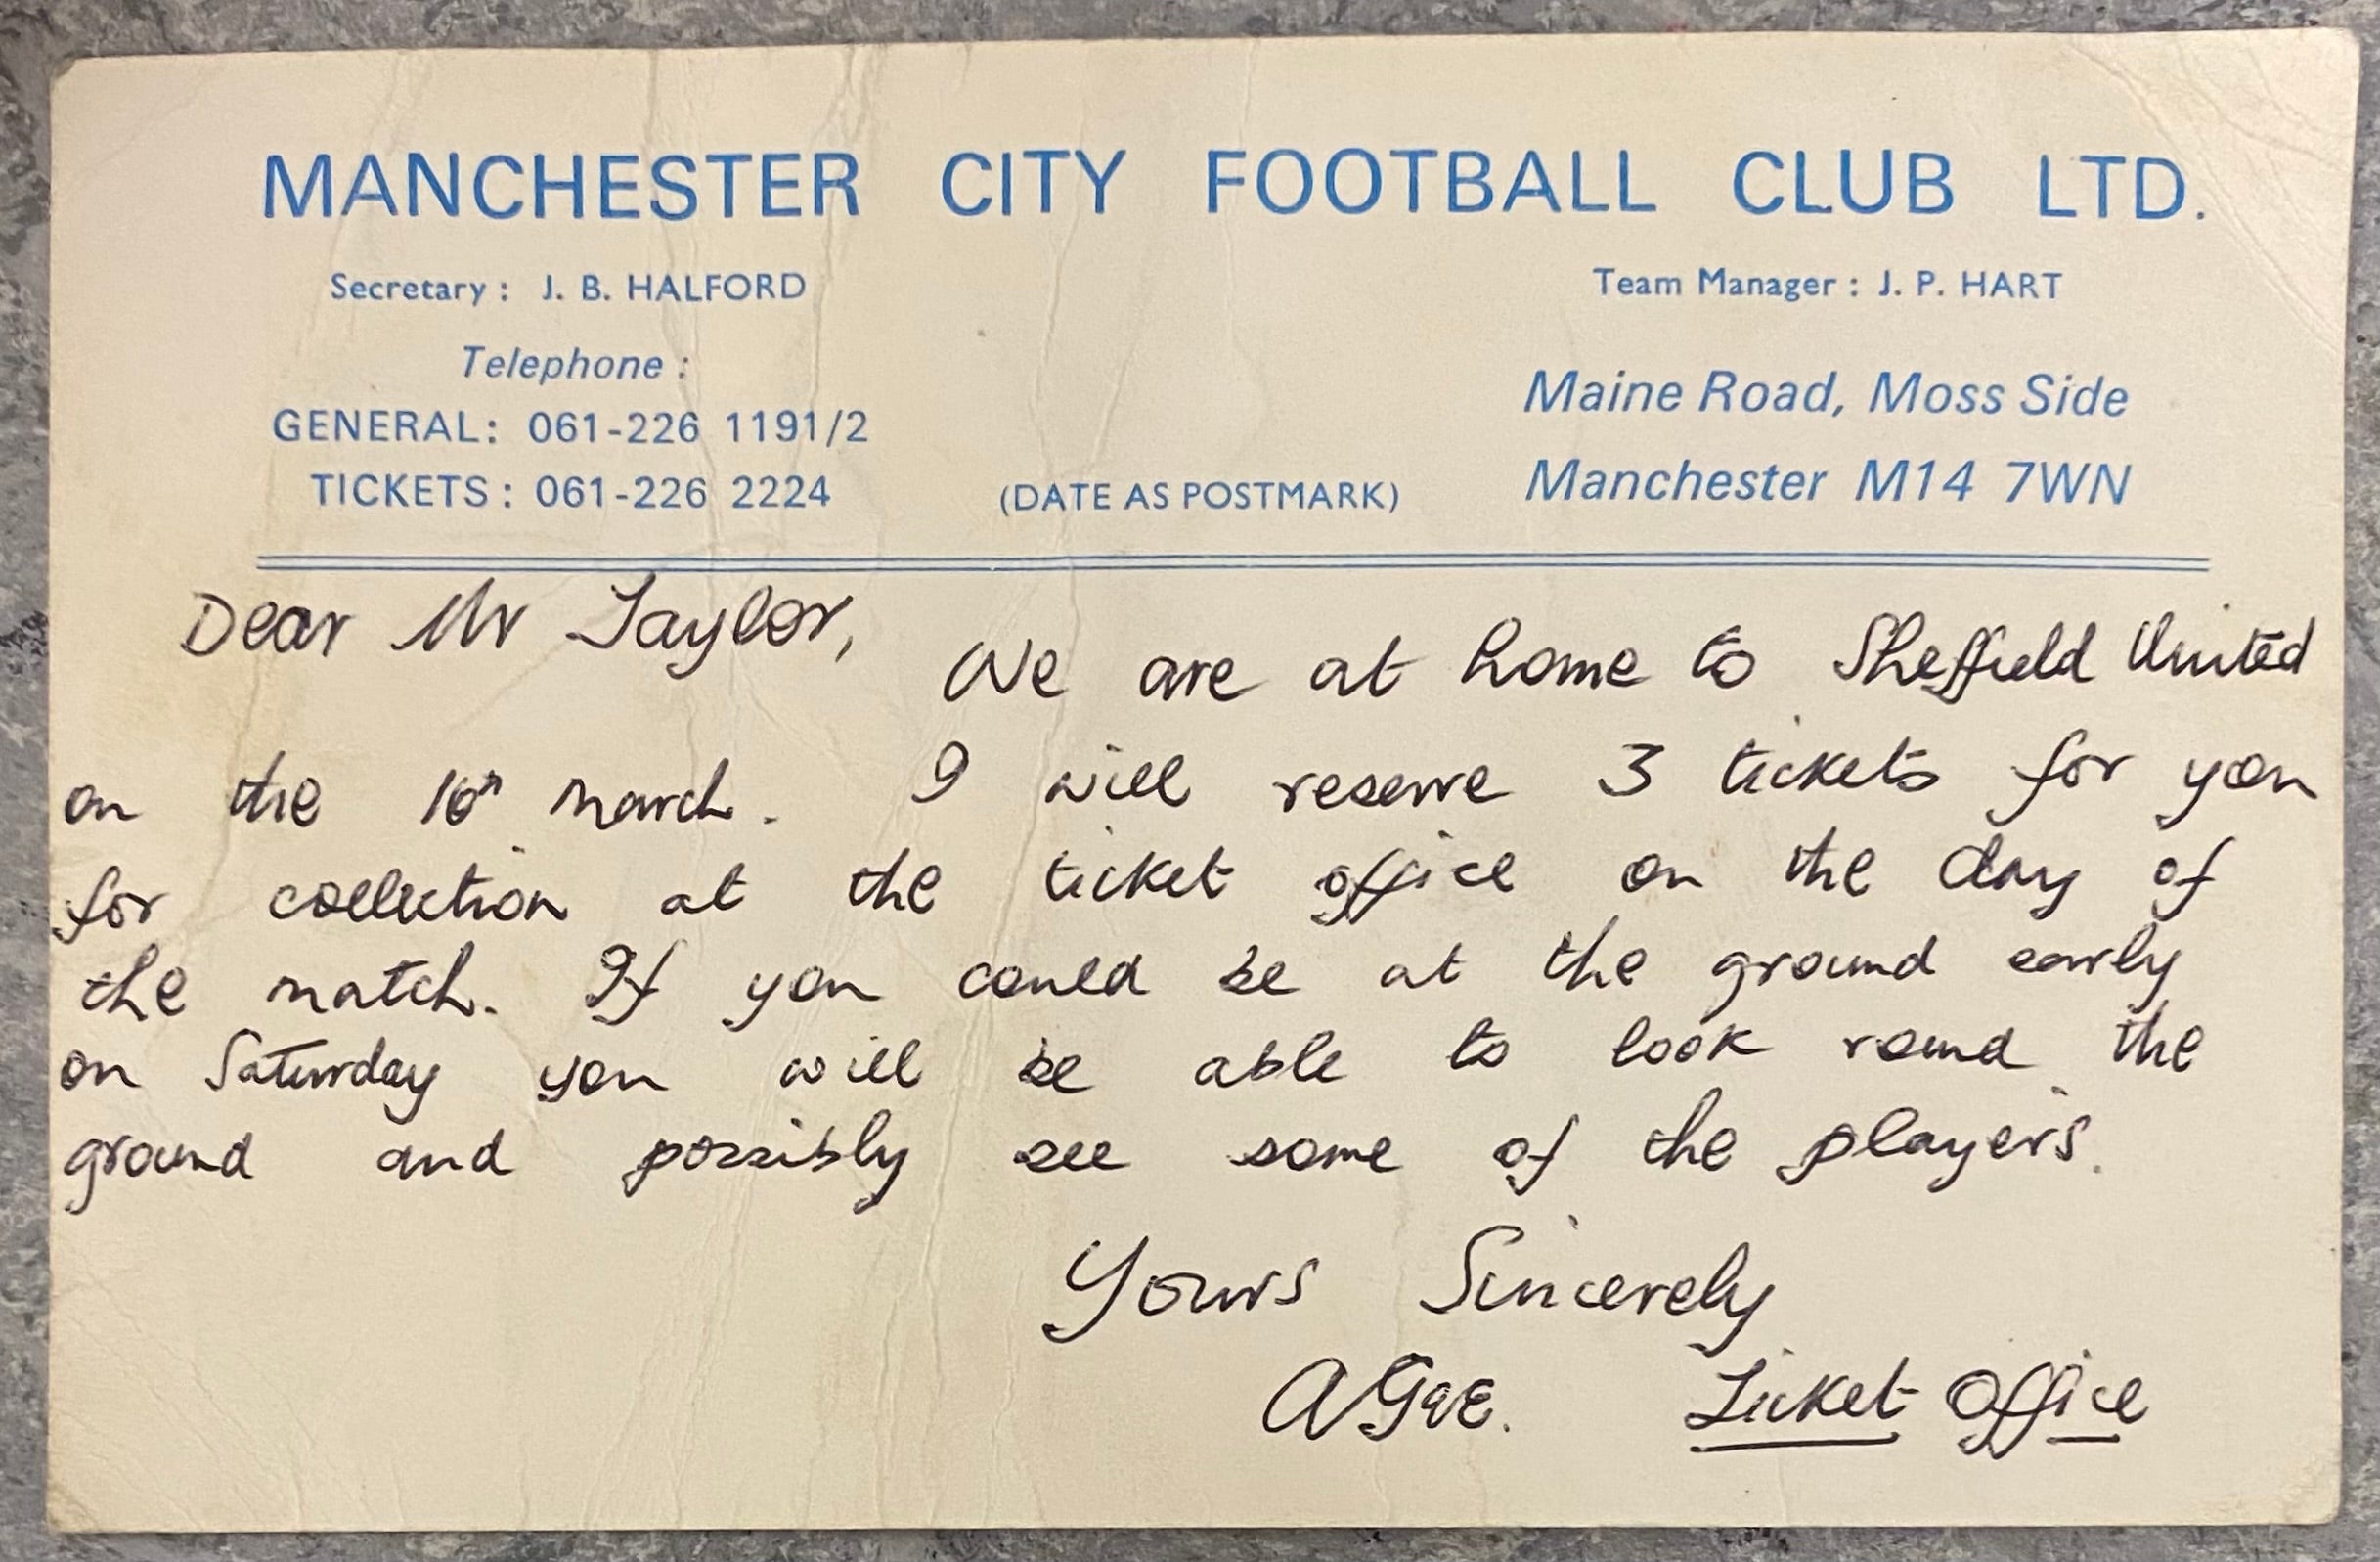 MANCHESTER CITY FOOTBALL CLUB LTD.
Secretary : J. B. HALFORD
Team Manager : J. P. HART
Telephone :
GENERAL: 061-226 1191/2
TICKETS : 061-226 2224
(DATE AS POSTMARK)
Maine Road, Moss Side
Manchester M14 7WN
Dear Mr Taylor,
We are at home to Sheffield United
on the 16th March. I will reserve 3 tickets for you
for collection at the ticket office on the day of
the match. If you could be at the ground early
on Saturday you will be able to look round the
ground and possibly see some of the players.
Yours Sincerely
Ticket Office